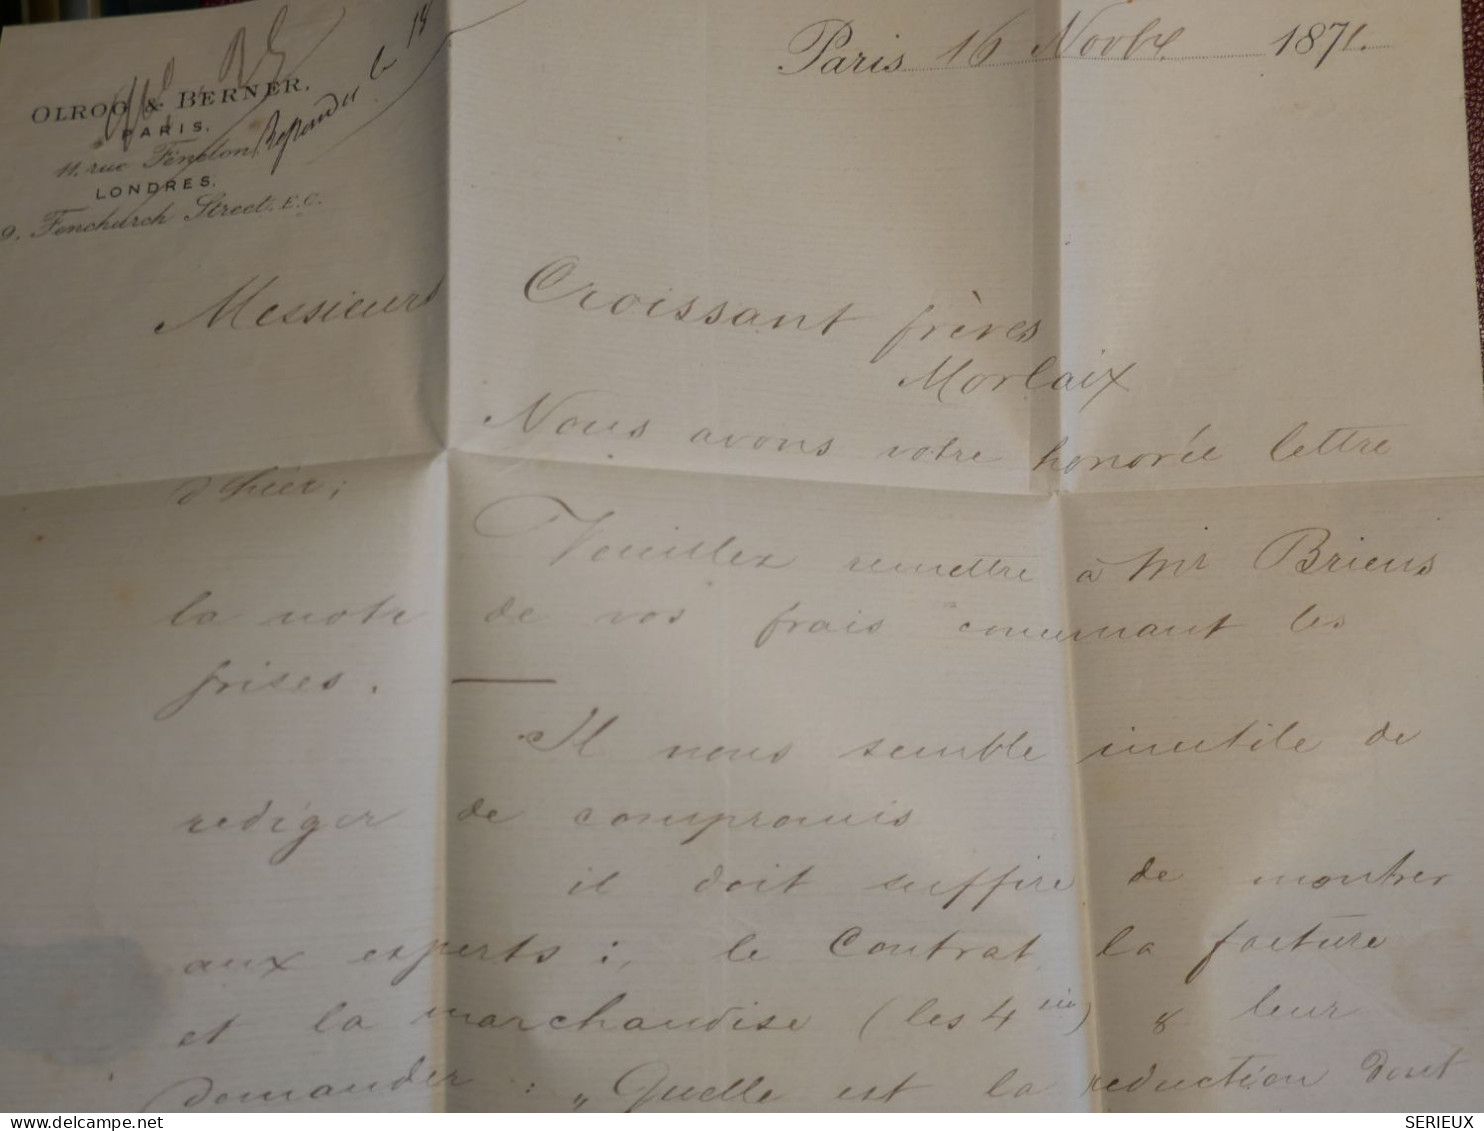 OLROG & BERNER.
PARIS.
11, rue Fénélon
Répondu le 18
LONDRES.
9. Fenchurch Street. E.C.
Paris 16 Novbre 1871.
Messieurs Croissant frères
Morlaix
Nous avons votre honorée lettre
d'hier;
Veuillez remettre à Mr Briens
la note de vos frais concernant les
frises. —
Il nous semble inutile de
rediger de compromis
il doit suffire de montrer
aux experts : le Contrat, la facture
et la marchandise (les 4 ) & leur
demander : „Quelle est la reduction dont
SERIEUX